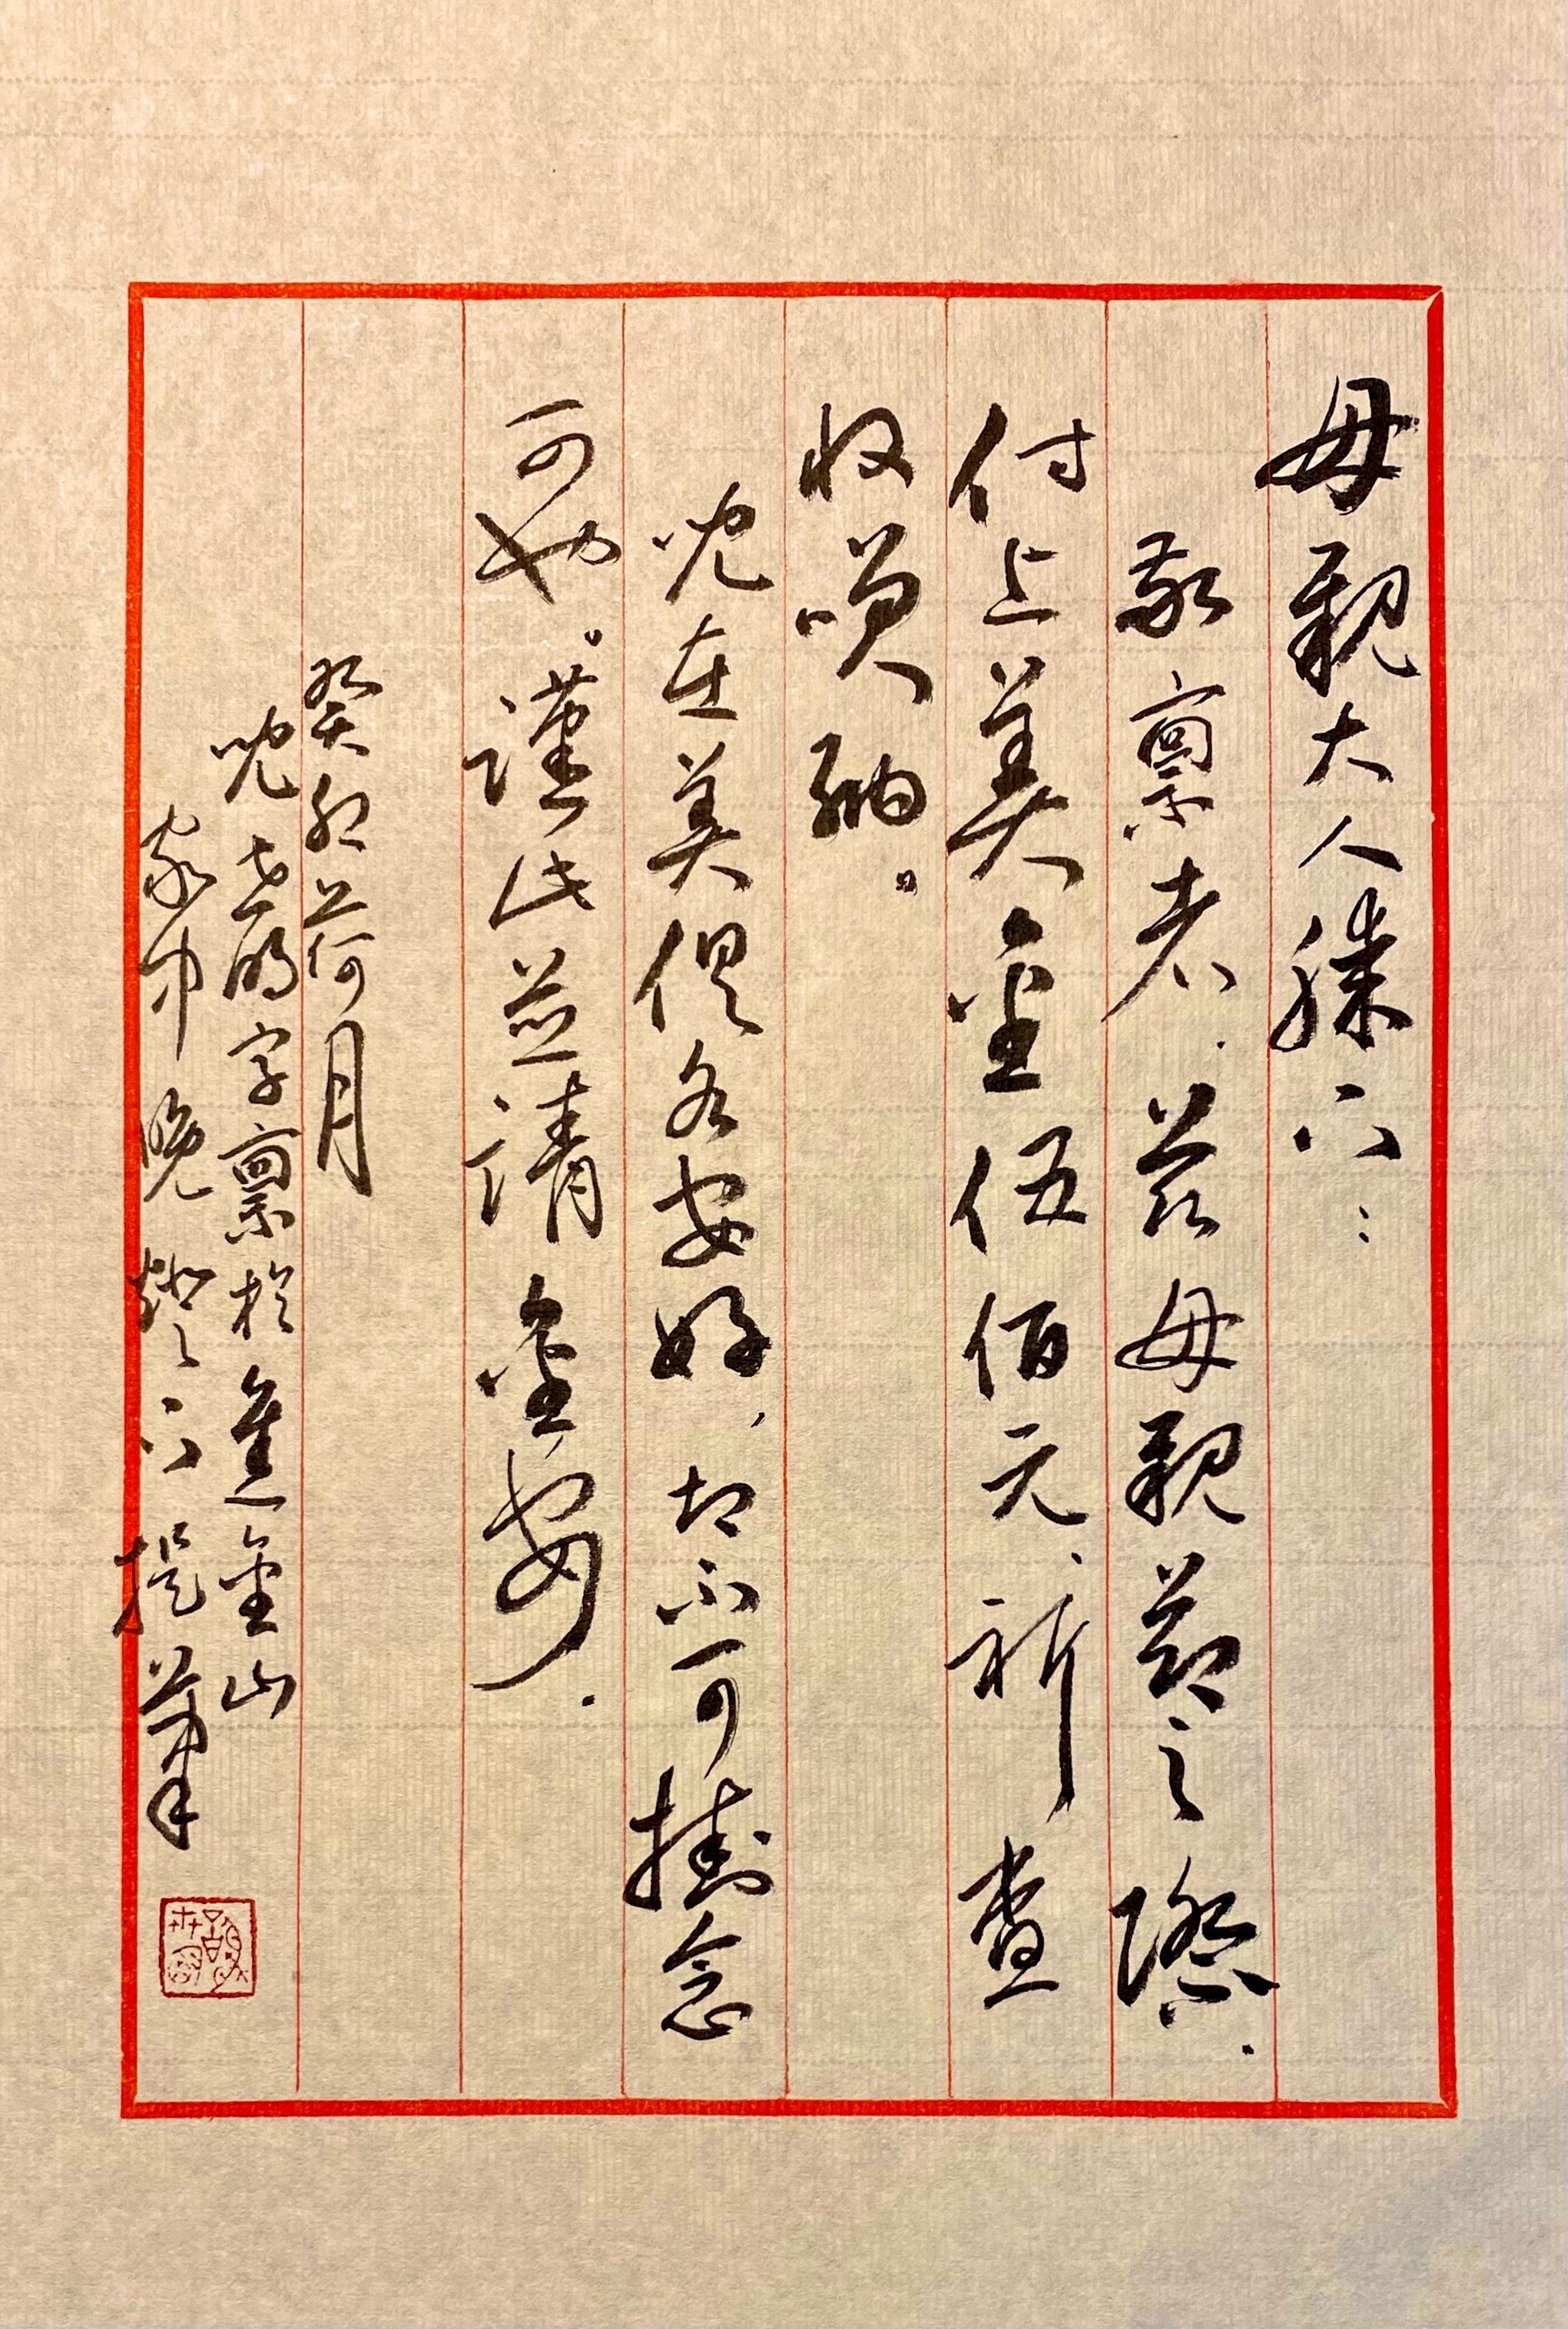 母親大人膝下：
敬禀者、茲母親節之際、
付上美金伍佰元、祈查
收哂納。
兒在美俱各安好，切不可掛念
可也。謹此並請金安．
癸卯荷月
兒字禀於舊金山
家中晚燈下提筆